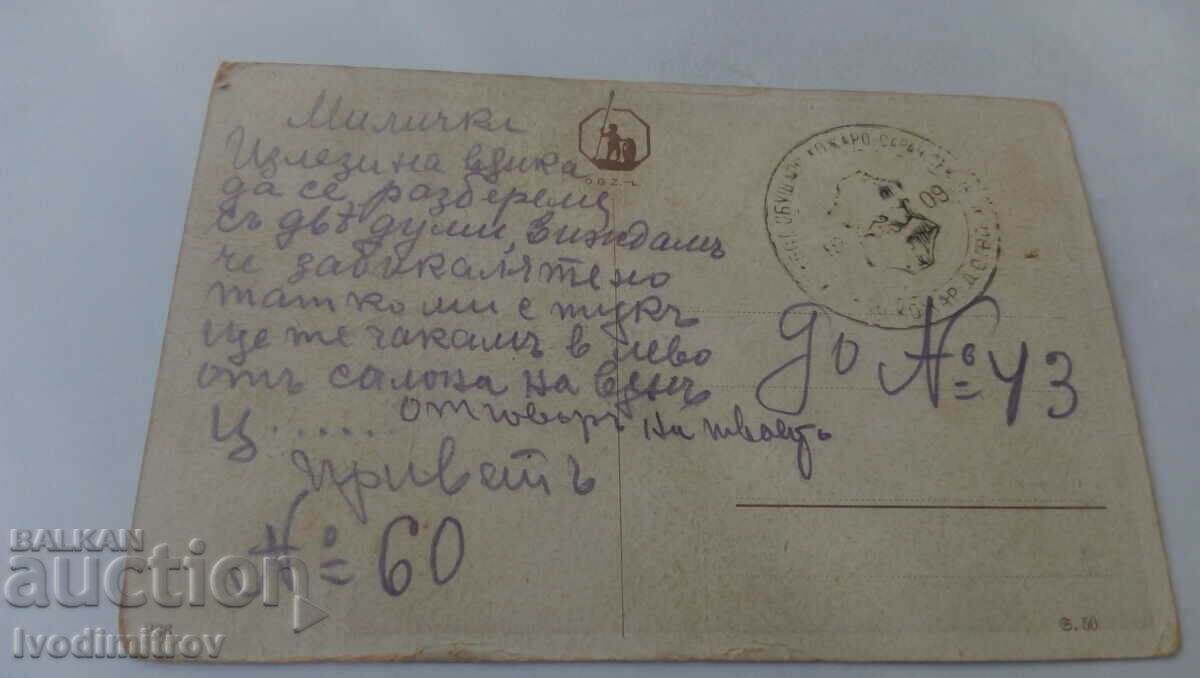 Милички
Излези на
да се разберемъ
съ двѣ думи, виждамъ
че забикалятено
татко ми е тукъ
ще те чакамъ в лево
отъ салона на
Ц...... отговоръ на твоетъ
Приветъ
№ 60
O.G.Z.-L.
ОБУЩ. КОЖАРО-САРАЧ.
09
До № 43
G.50
BALKAN
auction
Ivodimitrov